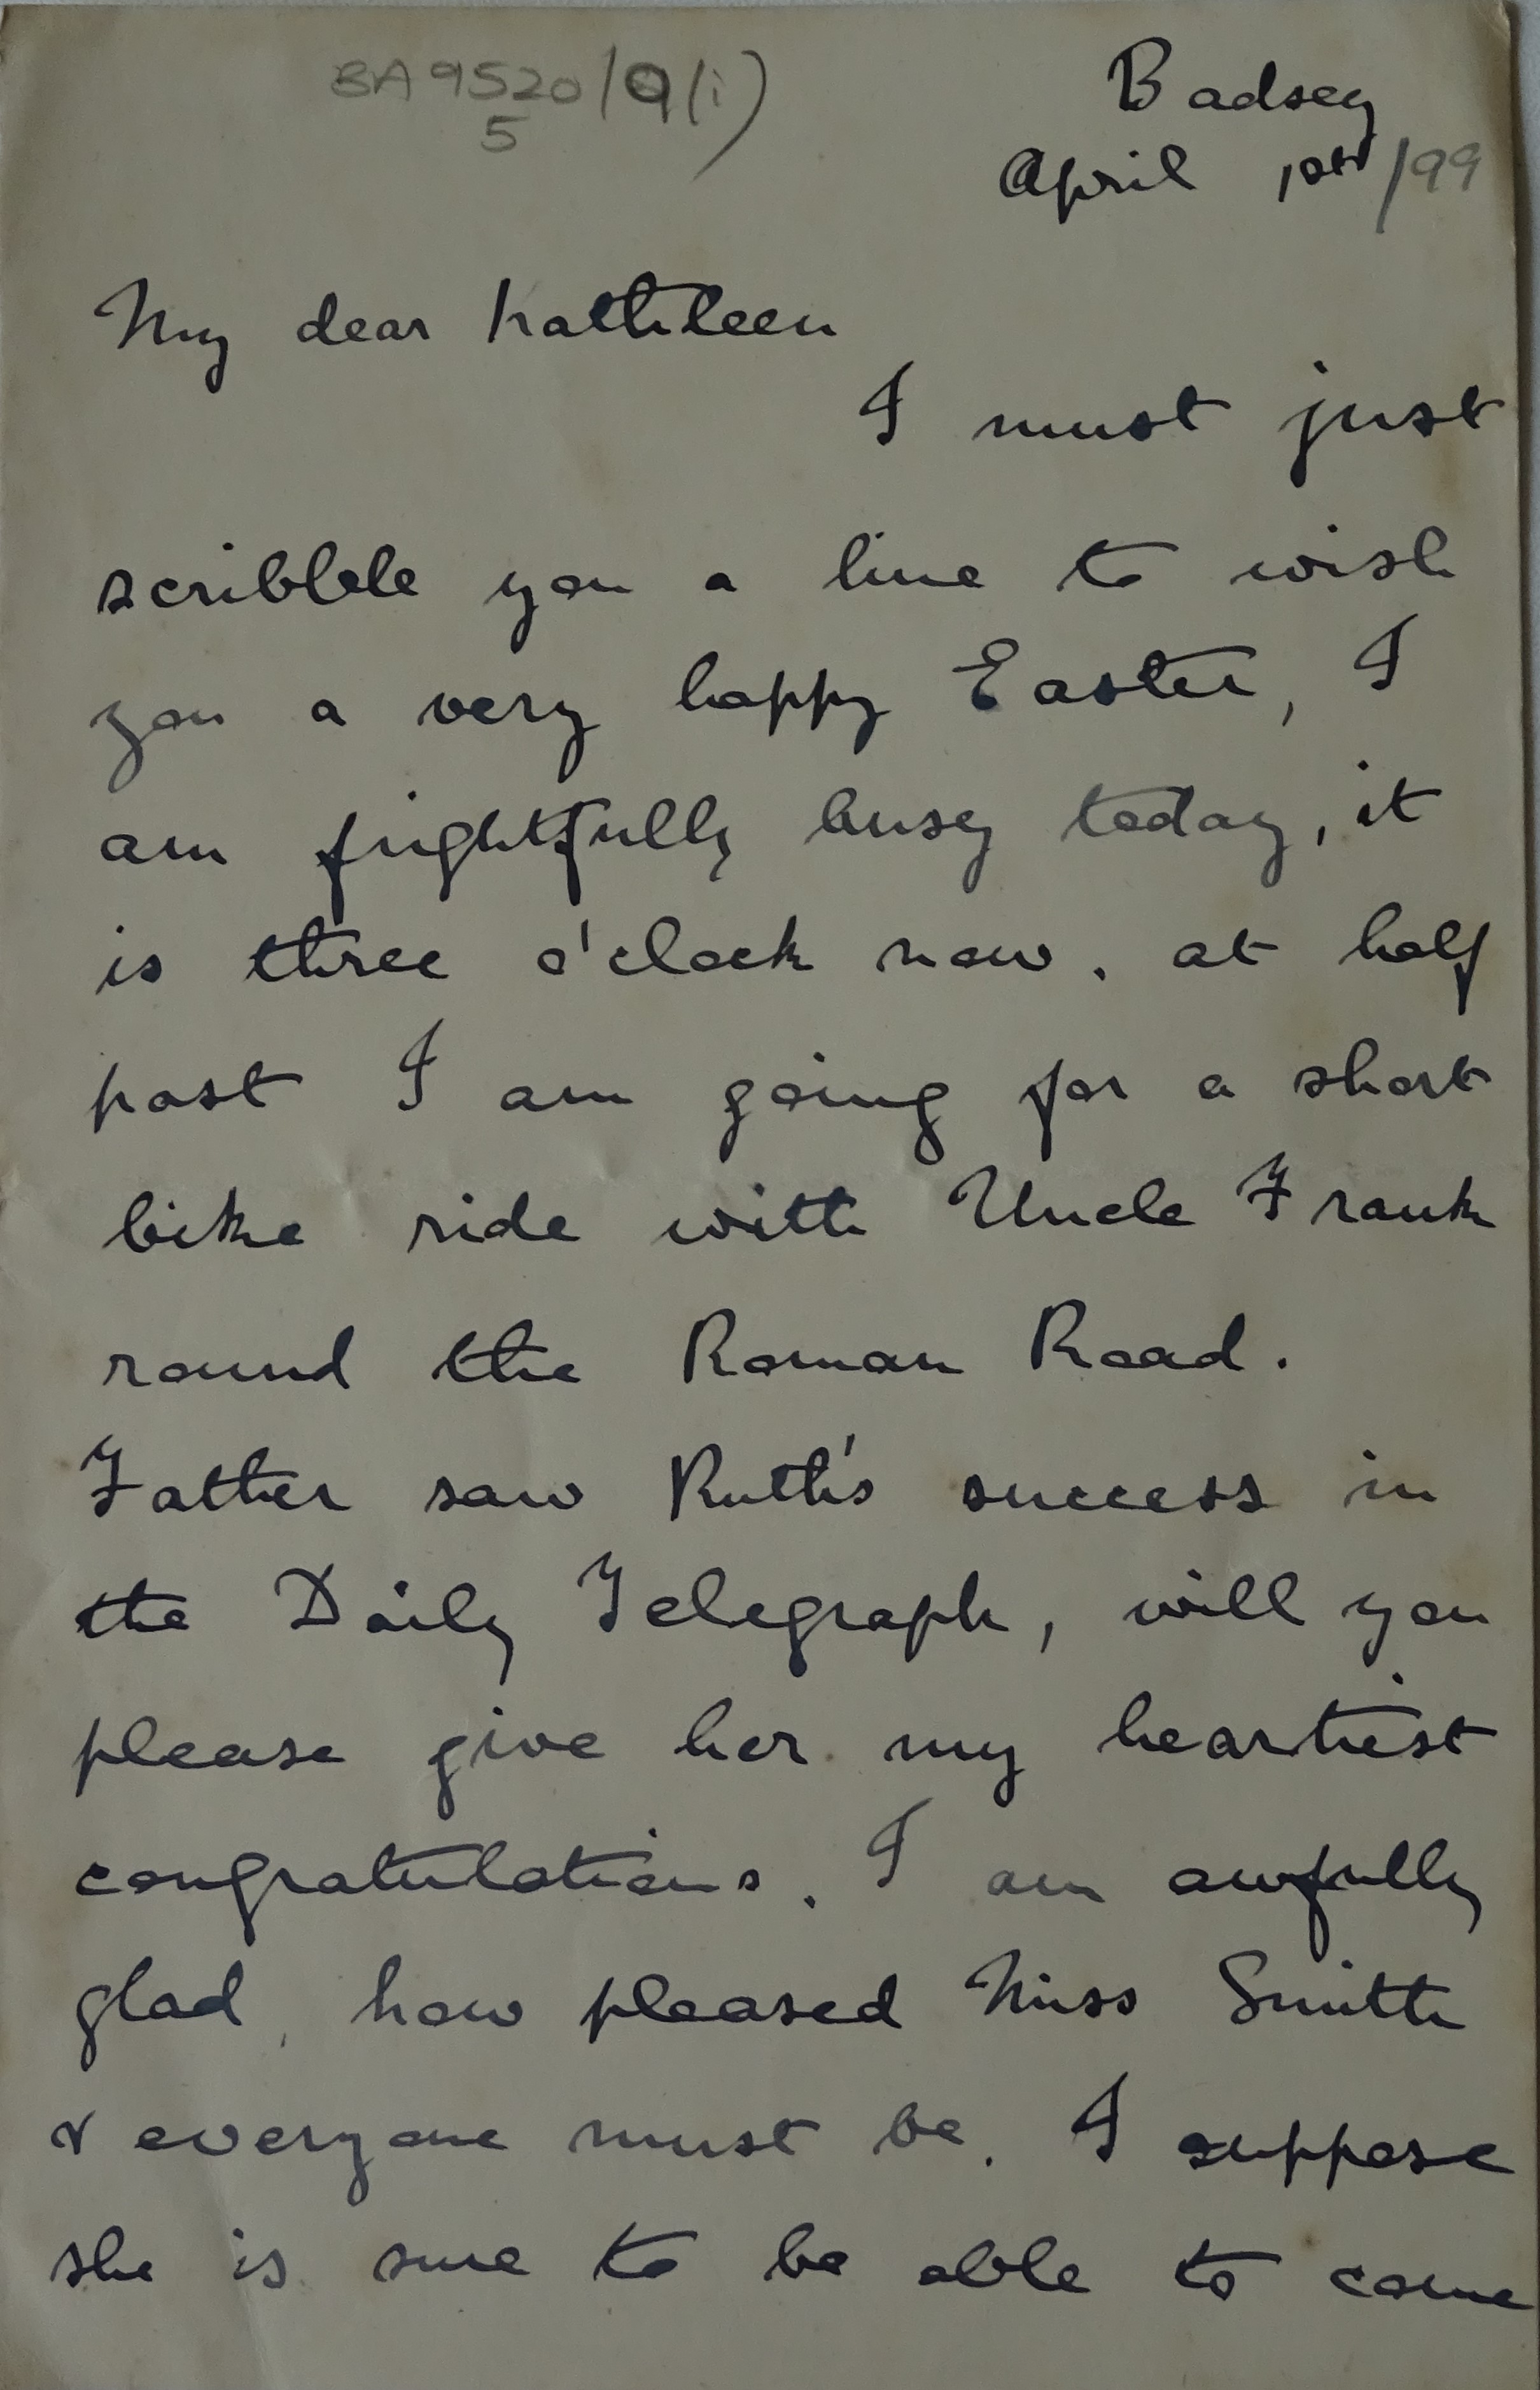 BA 9520/9(i)
5
Badsey
April 1st/99
My dear Kathleen
I must just
scribble you a line to wish
you a very happy Easter, I
am frightfully busy today, it
is three o'clock now. at half
past I am going for a short
bike ride with Uncle Frank
round the Roman Road.
Father saw Ruth's success in
the Daily Telegraph, will you
please give her my heartiest
congratulations. I am awfully
glad, how pleased Miss Smith
& everyone must be. I suppose
she is sure to be able to come